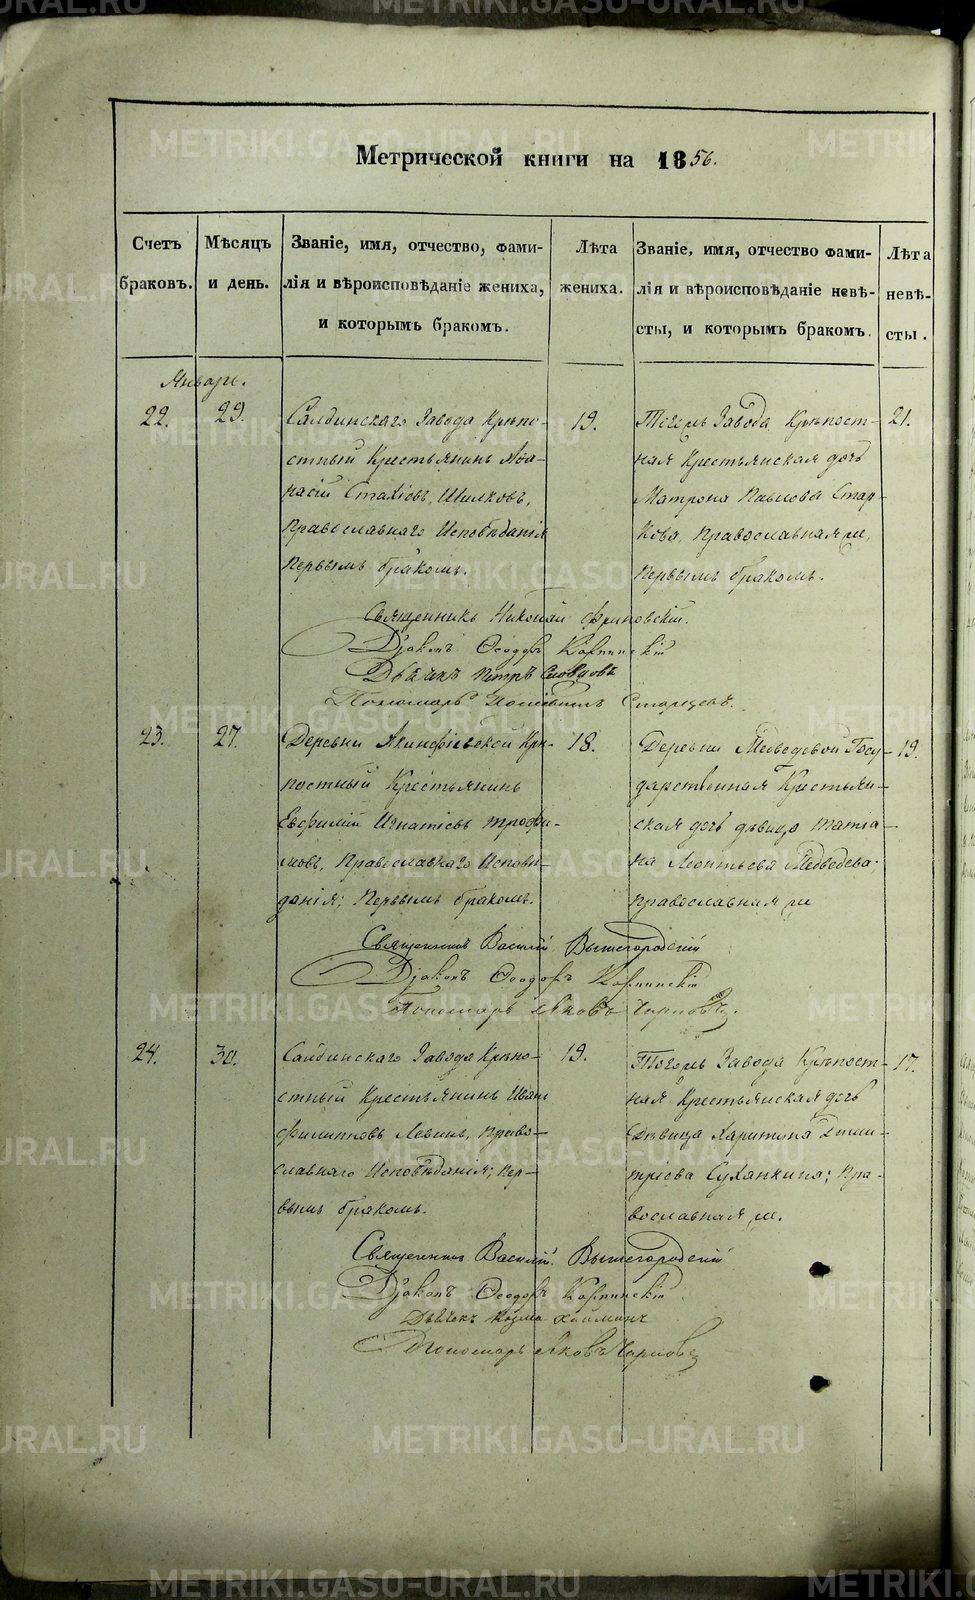 Метрической книги на 1856.
Счетъ браковъ.
Мѣсяцъ и день.
Званіе, имя, отчество, фами-
лія и вѣроисповѣданіе жениха,
и которымъ бракомъ.
Лѣта жениха.
Званіе, имя, отчество фами-
лія и вѣроисповѣданіе невѣ-
сты, и которымъ бракомъ.
Лѣта невѣ-
сты.
Январь.
22.
29.
Салдинскаго Завода Крѣпо-
стный Крестьянинъ Афа-
насій Стахіевъ, Шилковъ,
Православнаго Исповѣданія
первымъ бракомъ.
19.
Тогожъ Завода Крѣпост-
ная Крестьянская дочь
Матрона Павлова Стар-
кова, Православная,
первымъ бракомъ.
21.
Священникъ Николай
Діаконъ Ѳеодоръ Карпинскій
Дьячекъ Петръ Словцовъ
Пономарь Старцевъ.
23.
27.
Деревни Акинфіевской Крѣ-
постный Крестьянинъ
Евфимій Игнатіевъ Трофи-
мовъ, Православнаго Исповѣ-
данія; Первымъ бракомъ.
18.
Деревни Медведевой Госу-
дарственная Крестьян-
ская дочь дѣвица Татіа-
на Леонтьева Медведева;
православная
19.
Священникъ Василій Вышегородскій
Діаконъ Ѳеодоръ Карпинскій
Пономарь Яковъ
24.
30.
Салдинскаго Завода Крѣпо-
стный Крестьянинъ Иванъ
Филиповъ Левинъ, Право-
славнаго Исповѣданія; пер-
вымъ бракомъ.
19.
Тогожъ Завода Крѣпост-
ная Крестьянская дочь
Дѣвица Харитина Дими-
тріева Суханкина; Пра-
вославная
17.
Священникъ Василій Вышегородскій
Діаконъ Ѳеодоръ Карпинскій
Дьячекъ Козма
Пономарь Яковъ
METRIKI.GASO-URAL.RU